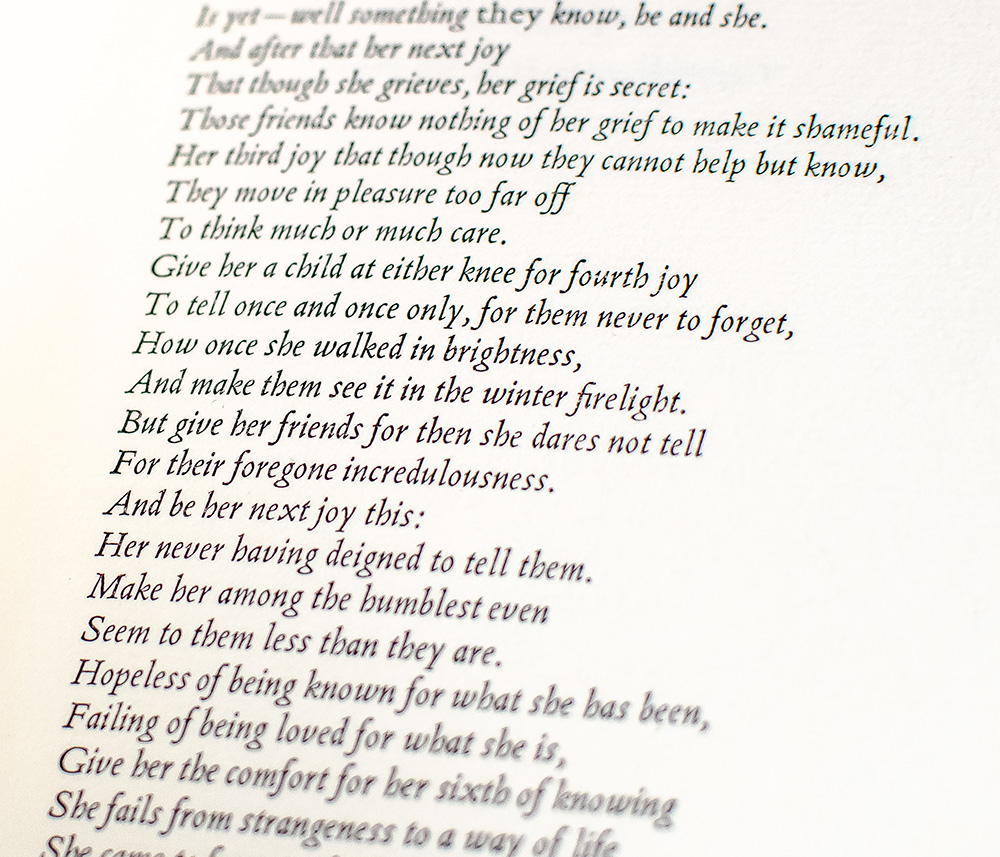 Is yet—well something they know, he and she.
And after that her next joy
That though she grieves, her grief is secret:
Those friends know nothing of her grief to make it shameful.
Her third joy that though now they cannot help but know,
They move in pleasure too far off
To think much or much care.
Give her a child at either knee for fourth joy
To tell once and once only, for them never to forget,
How once she walked in brightness,
And make them see it in the winter firelight.
But give her friends for then she dares not tell
For their foregone incredulousness.
And be her next joy this:
Her never having deigned to tell them.
Make her among the humblest even
Seem to them less than they are.
Hopeless of being known for what she has been,
Failing of being loved for what she is,
Give her the comfort for her sixth of knowing
She fails from strangeness to a way of life
She came to